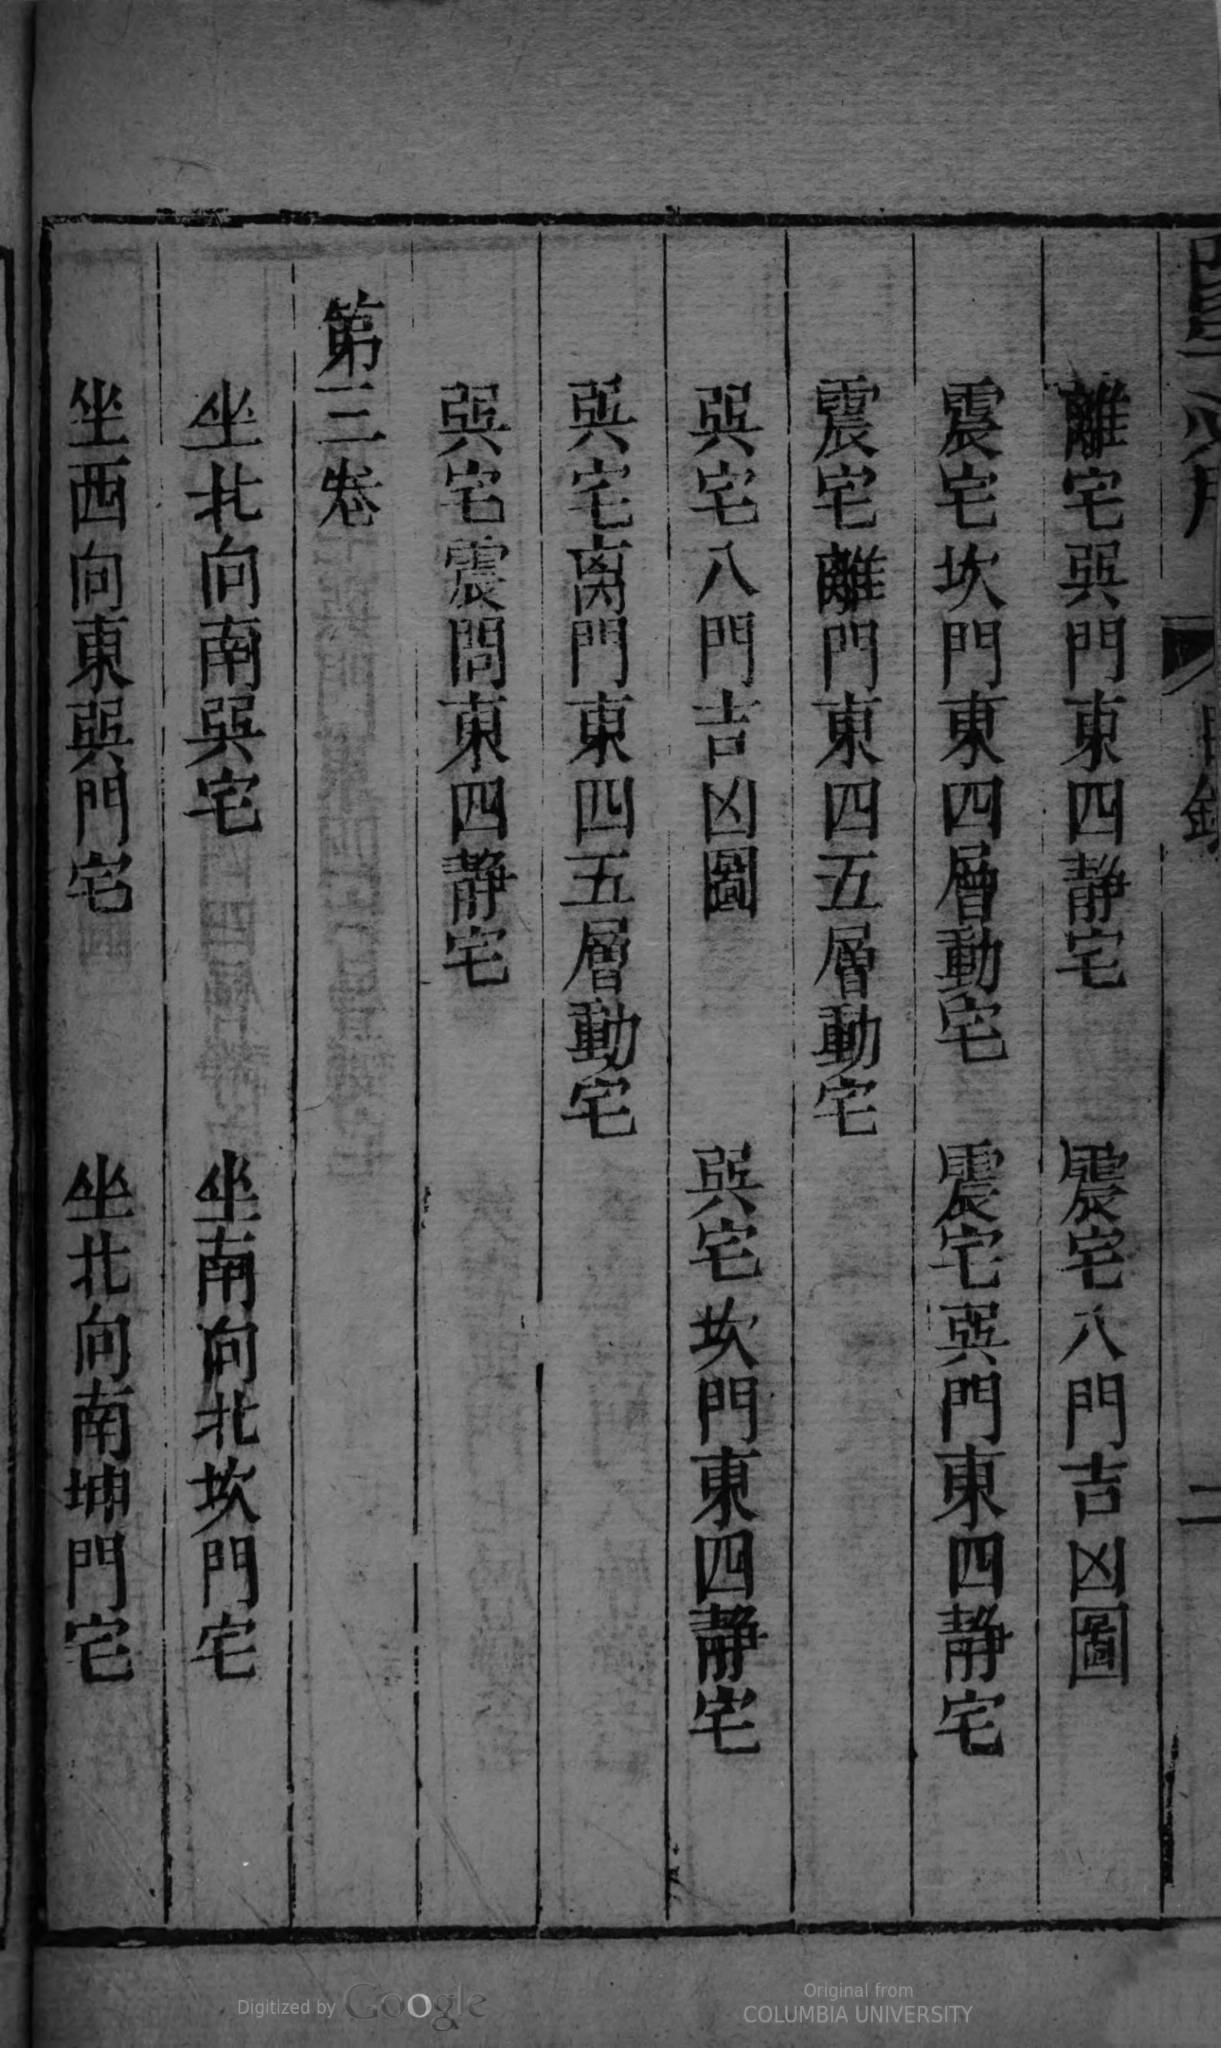 離宅巽門東四静宅　震宅八門吉凶圖
震宅坎門東四層動宅　震宅巽門東四静宅
震宅離門東四五層動宅
巽宅八門吉凶圖　巽宅坎門東四静宅
巽宅离門東四五層動宅
巽宅震問東四静宅
第三卷
坐北向南巽宅　坐南向北坎門宅
坐西向東巽門宅　坐北向南坤門宅
二
Digitized by Google
Original from
COLUMBIA UNIVERSITY